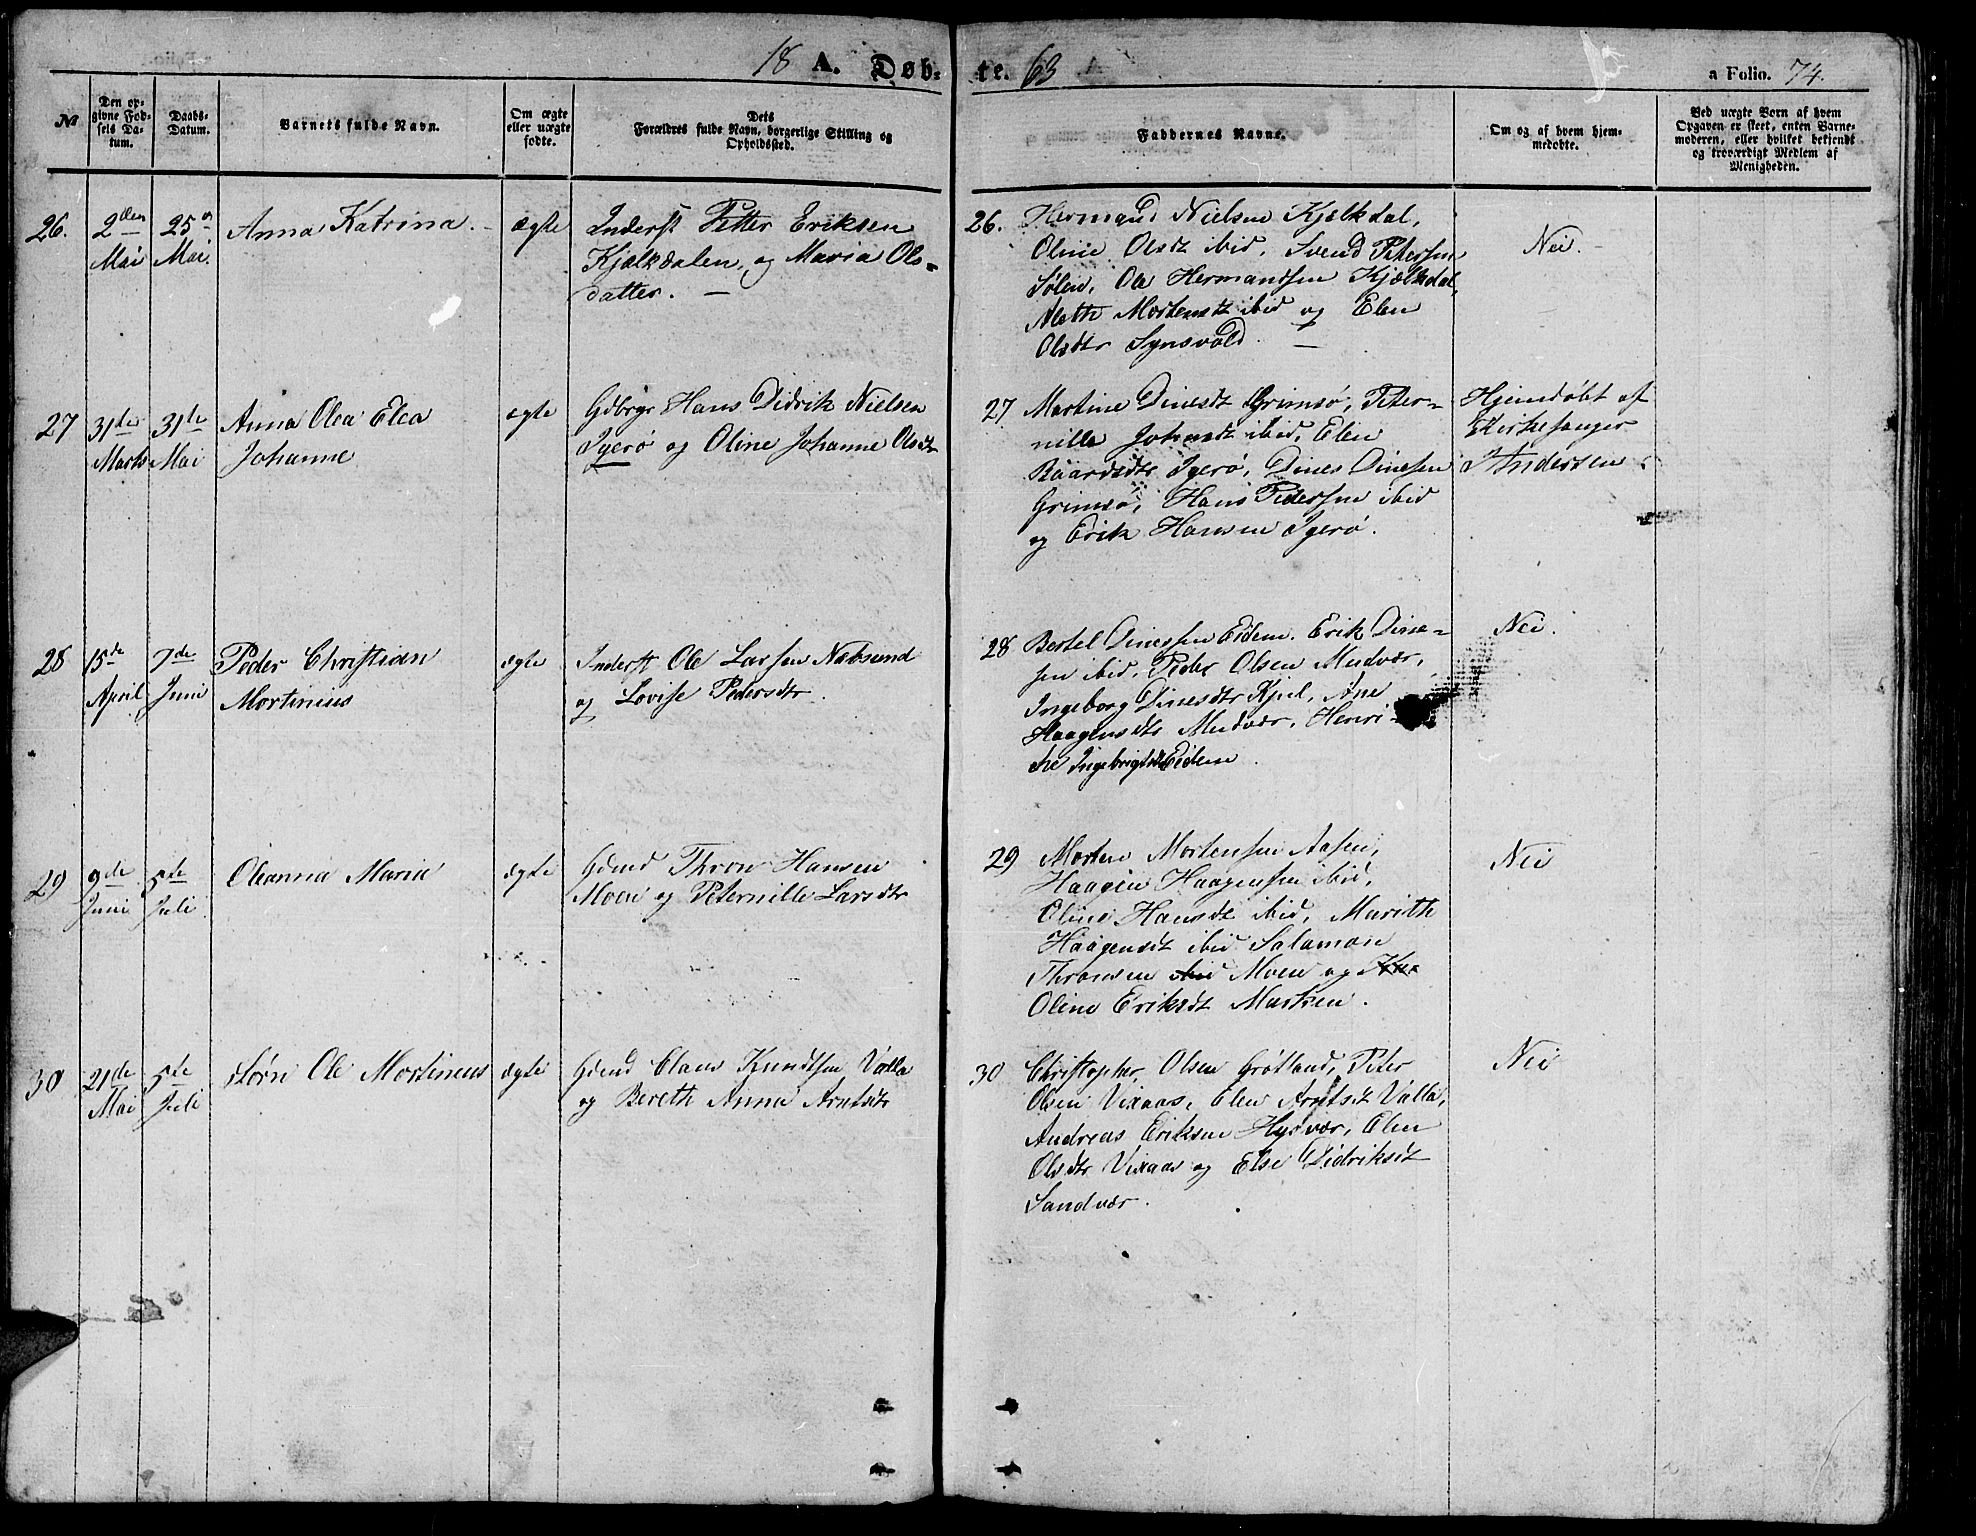 18 A. Døb-
te. 63
a Folio. 74.
No
Den op-
givne Fød-
sels Da-
tum.
Daabs-
Datum.
Barnets fulde Navn.
Om ægte
eller uægte
fødte.
Dets
Forældres fulde Navn, borgerlige Stilling og
Opholdssted.
Faddernes Navne.
Om og af hvem hjem-
medøbte.
Ved uægte Børn af hvem
Opgaven er skeet, enten Barne-
moderen, eller hvilket bekjendt
og troværdigt Medlem af
Menigheden.
26.
2den
Mai
25
Mai.
Anna Katrina.
ægte
Inderst Petter Eriksen
Kjælkdalen, og Maria Ols-
datter. —
26. Hermand Nielsen Kjælkdal,
Oline Olsdt ibid, Svend Petersen
Sølen, Ole Hermandsen Kjælkdal,
Aleth Mortensdt ibid og Elen
Olsdtr Synsvold. —
Nei.
27
31te
Marts
31te
Mai
Anna Olea Elea
Johanne
ægte
Gdbrgr Hans Didrik Nielsen
Igerø og Oline Johanne Olsdt
27 Martine Dinesdt Grimsø, Peter-
nille Johnsdt ibid, Elen
Baardsdtr Igerø, Dines Dinesen
Grimsø, Hans Pedersen ibid
og Erik Hansen Igerø.
Hjemdøbt af
Kirkesanger
J Andersen
28
15de
April
7de
Juni
Peder Christian
Mortinius
ægte
Inderst Ole Larsen Næbsund
og Lovise Pedersdtr.
28 Bertel Dinessen Eidem. Erik Dine-
sen ibid, Peder Olsen Mudvær,
Ingeborg Dinesdtr Kjul, Ane
Haagensdtr Mudvær, Henri-
che Ingebrigtsdt Eidem.
Nei.
29
9de
Juni
5te
Juli
Oleanna Maria
ægte
Gdmd Thron Hansen
Moen og Peternille Larsdtr
29 Morten Mortensen Aasen,
Haagen Haagensen ibid,
Oline Hansdt ibid, Marith
Haagensdt ibid Salamon
Thronsen ibid Moen og
Oline Eriksdt Martzen.
Nei
30
21de
Mai
5te
Juli
Sørn Ole Mortineus
ægte
Gdmd Claus Knudtsen Valla
og Bereth Anna Arntsdtr
30 Christopher Olsen Grøtland, Peter
Olsen Vixaas, Elen Arntsdt Valla,
Andreas Eriksen Hysvær, Elen
Olsdtr Vixaas og Else Didriksdt
Sandvær.
Nei